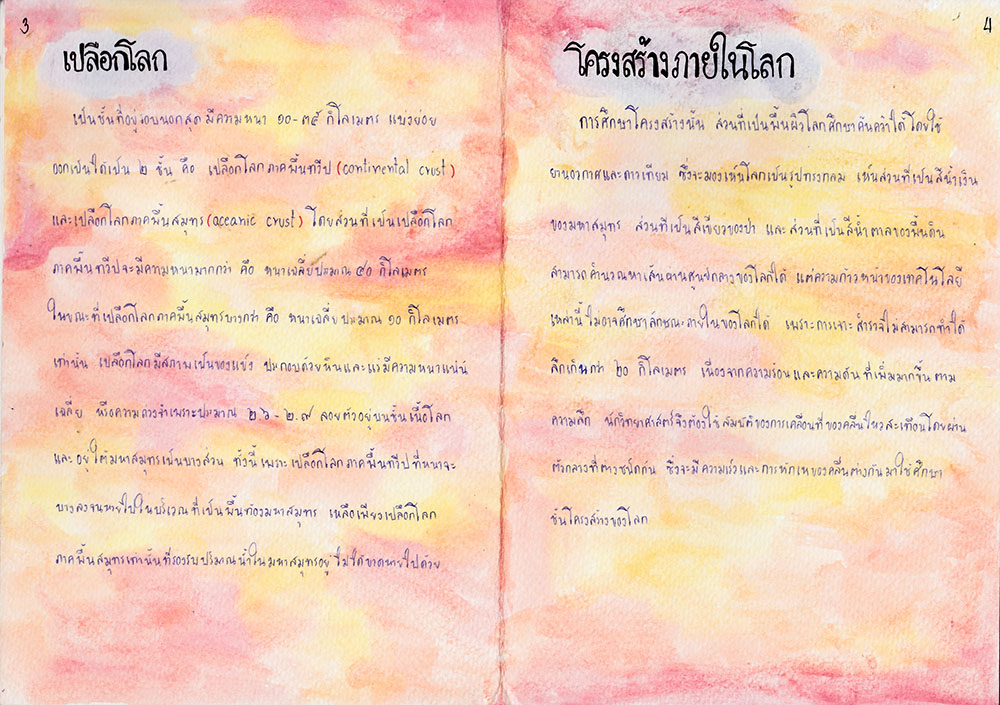 3
เปลือกโลก
เป็นชั้นที่อยู่รอบนอกสุด มีความหนา ๑๐-๓๕ กิโลเมตร แบ่งย่อย
ออกเป็นได้เป็น ๒ ชั้น คือ เปลือกโลกภาคพื้นทวีป (continental crust)
และเปลือกโลกภาคพื้นสมุทร (oceanic crust) โดยส่วนที่เป็นเปลือกโลก
ภาคพื้นทวีปจะมีความหนามากกว่า คือ หนาเฉลี่ยประมาณ ๔๐ กิโลเมตร
ในขณะที่เปลือกโลกภาคพื้นสมุทรบางกว่า คือ หนาเฉลี่ยประมาณ ๑๐ กิโลเมตร
เท่านั้น เปลือกโลกมีสภาพเป็นของแข็ง ประกอบด้วยหินและแร่มีความหนาแน่น
เฉลี่ย หรือความถ่วงจำเพราะประมาณ ๒.๖ - ๒.๗ ลอยตัวอยู่บนชั้นเนื้อโลก
และอยู่ใต้มหาสมุทรเป็นบางส่วน ทั้งนี้เพราะเปลือกโลกภาคพื้นทวีปที่หนาจะ
บางลงจนหายไปในบริเวณที่เป็นพื้นท้องมหาสมุทร เหลือเพียงเปลือกโลก
ภาคพื้นสมุทรเท่านั้นที่รองรับปริมาณน้ำในมหาสมุทรอยู่ ไม่ได้ขาดหายไปด้วย
4
โครงสร้างภายในโลก
การศึกษาโครงสร้างนั้น ส่วนที่เป็นพื้นผิวโลกศึกษาค้นคว้าได้โดยใช้
ยานอวกาศและดาวเทียม ซึ่งจะมองเห็นโลกเป็นรูปทรงกลม เห็นส่วนที่เป็นสีน้ำเงิน
ของมหาสมุทร ส่วนที่เป็นสีเขียวของป่า และส่วนที่เป็นสีน้ำตาลของพื้นดิน
สามารถคำนวณหาเส้นผ่านศูนย์กลางของโลกได้ แต่ความก้าวหน้าของเทคโนโลยี
เหล่านี้ไม่อาจศึกษาลักษณะภายในของโลกได้ เพราะการเจาะสำรวจไม่สามารถทำได้
ลึกเกินกว่า ๒๐ กิโลเมตร เนื่องจากความร้อนและความดันที่เพิ่มมากขึ้นตาม
ความลึก นักวิทยาศาสตร์จึงต้องใช้สมบัติของการเคลื่อนที่ของคลื่นไหวสะเทือนโดยผ่าน
ตัวกลางที่ต่างชนิดกัน ซึ่งจะมีความเร็วและการหักเหของคลื่นต่างกันมาใช้ศึกษา
ชั้นโครงสร้างของโลก